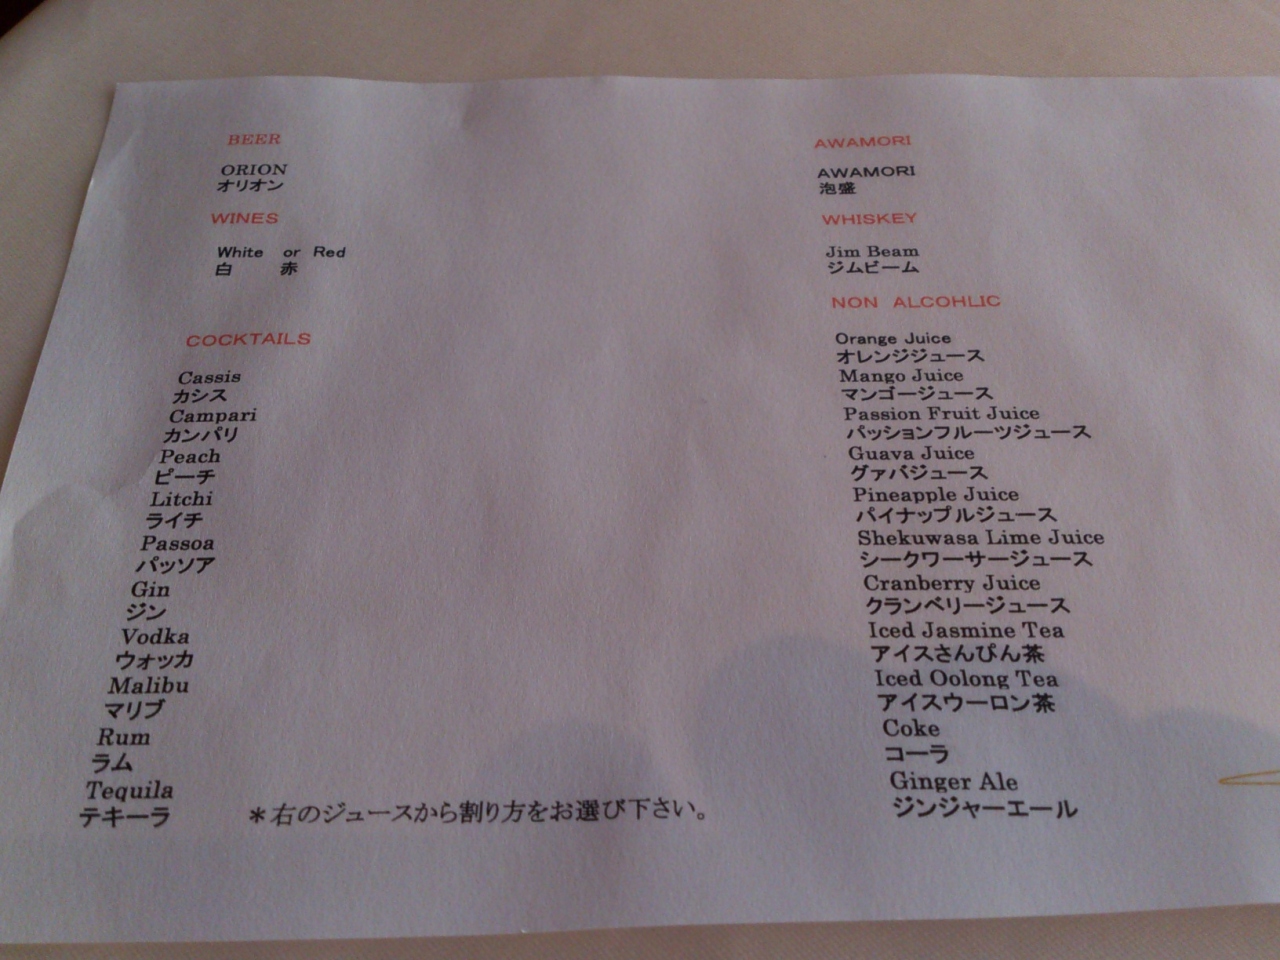 BEER
ORION
オリオン
WINES
White or Red
白 赤
COCKTAILS
Cassis
カシス
Campari
カンパリ
Peach
ピーチ
Litchi
ライチ
Passoa
パッソア
Gin
ジン
Vodka
ウォッカ
Malibu
マリブ
Rum
ラム
Tequila
テキーラ
＊右のジュースから割り方をお選び下さい。
AWAMORI
AWAMORI
泡盛
WHISKEY
Jim Beam
ジムビーム
NON ALCOHLIC
Orange Juice
オレンジジュース
Mango Juice
マンゴージュース
Passion Fruit Juice
パッションフルーツジュース
Guava Juice
グァバジュース
Pineapple Juice
パイナップルジュース
Shekuwasa Lime Juice
シークワーサージュース
Cranberry Juice
クランベリージュース
Iced Jasmine Tea
アイスさんぴん茶
Iced Oolong Tea
アイスウーロン茶
Coke
コーラ
Ginger Ale
ジンジャーエール